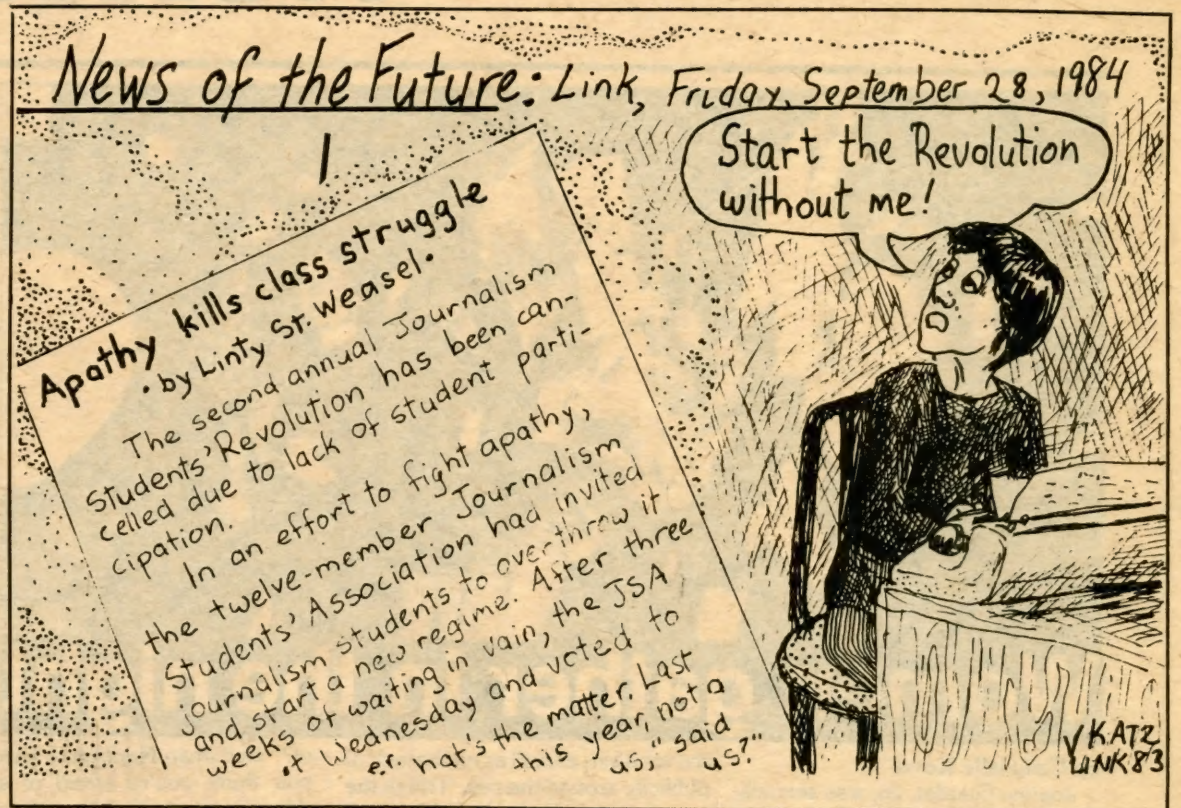 News of the Future: Link, Friday, September 28, 1984
Start the Revolution
without me!
Apathy kills class struggle
• by Linty St. Weasel •
The second annual Journalism
Students' Revolution has been can-
celled due to lack of student parti-
cipation.
In an effort to fight apathy,
the twelve-member Journalism
Students' Association had invited
journalism students to overthrow it
and start a new regime. After three
weeks of waiting in vain, the JSA
Wednesday and voted to
er.
hat's the matter. Last
this year, not a
us," said
us?"
KATZ
LINK 83